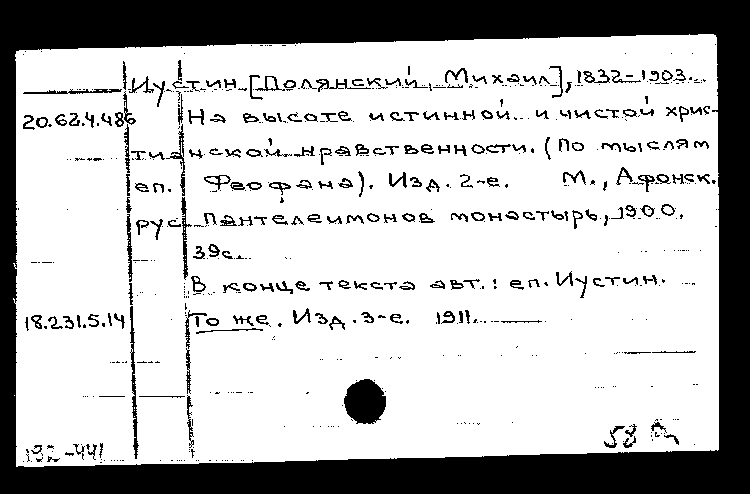 Иустин [Полянский, Михаил], 1832-1903.
20.62.4.486 На высоте истинной и чистой хрис-
тианской нравственности. (По мыслям
еп. Феофана). Изд. 2-е. М., Афонск.
рус. Пантелеимонов монастырь, 1900.
39с.
В конце текста авт.: еп. Иустин.
18.231.5.14 То же. Изд. 3-е. 1911.
58
192-441